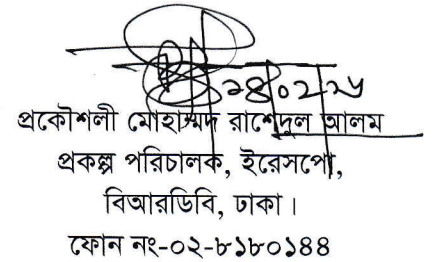 ২৪/০২/২৬
প্রকৌশলী মোহাম্মদ রাশেদুল আলম
প্রকল্প পরিচালক, ইরেসপো,
বিআরডিবি, ঢাকা।
ফোন নং-০২-৮১৮০১৪৪